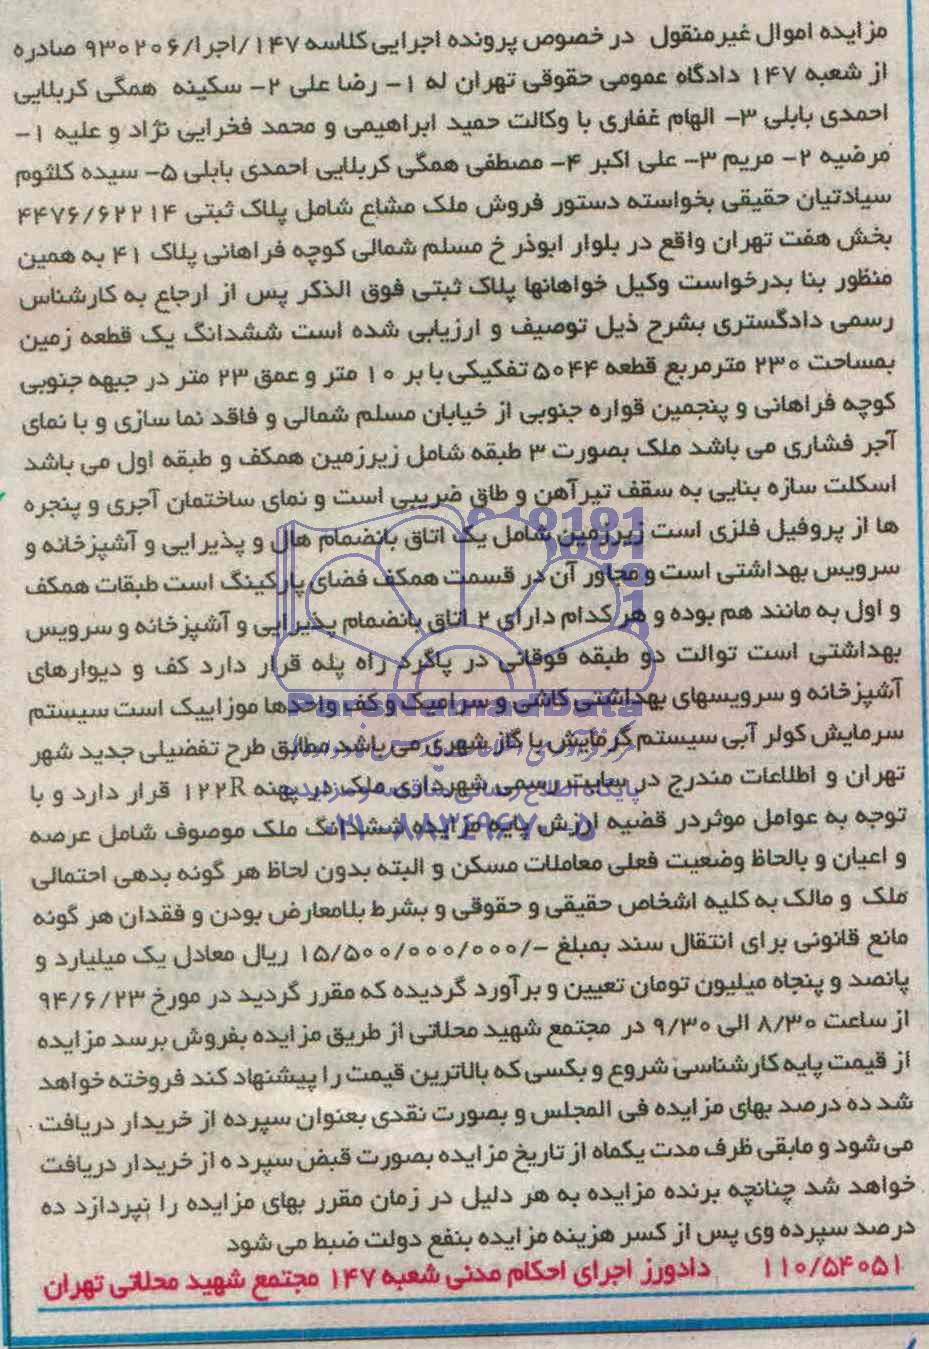 مزایده اموال غیرمنقول در خصوص پرونده اجرایی کلاسه ۱۴۷/اجرا/۹۳۰۲۰۶ صادره
از شعبه ۱۴۷ دادگاه عمومی حقوقی تهران له ۱- رضا علی ۲- سکینه همگی کربلایی
احمدی بابلی ۳- الهام غفاری با وکالت حمید ابراهیمی و محمد فخرایی نژاد و علیه ۱-
مرضیه ۲- مریم ۳- علی اکبر ۴- مصطفی همگی کربلایی احمدی بابلی ۵- سیده کلثوم
سیادتیان حقیقی بخواسته دستور فروش ملک مشاع شامل پلاک ثبتی ۴۴۷۶/۶۲۲۱۴
بخش هفت تهران واقع در بلوار ابوذر خ مسلم شمالی کوچه فراهانی پلاک ۴۱ به همین
منظور بنا بدرخواست وکیل خواهانها پلاک ثبتی فوق الذکر پس از ارجاع به کارشناس
رسمی دادگستری بشرح ذیل توصیف و ارزیابی شده است ششدانگ یک قطعه زمین
بمساحت ۲۳۰ مترمربع قطعه ۵۰۴۴ تفکیکی با بر ۱۰ متر و عمق ۲۳ متر در جبهه جنوبی
کوچه فراهانی و پنجمین قواره جنوبی از خیابان مسلم شمالی و فاقد نما سازی و با نمای
آجر فشاری می باشد ملک بصورت ۳ طبقه شامل زیرزمین همکف و طبقه اول می باشد
اسکلت سازه بنایی به سقف تیرآهن و طاق ضریبی است و نمای ساختمان آجری و پنجره
ها از پروفیل فلزی است زیرزمین شامل یک اتاق بانضمام هال و پذیرایی و آشپزخانه و
سرویس بهداشتی است و مجاور آن در قسمت همکف فضای پارکینگ است طبقات همکف
و اول به مانند هم بوده و هر کدام دارای ۲ اتاق بانضمام پذیرایی و آشپزخانه و سرویس
بهداشتی است توالت دو طبقه فوقانی در پاگرد راه پله قرار دارد کف و دیوارهای
آشپزخانه و سرویسهای بهداشتی کاشی و سرامیک و کف واحدها موزاییک است سیستم
ParsNamadData
سرمایش کولر آبی سیستم گرمایش با گاز شهری می باشد مطابق طرح تفضیلی جدید شهر
تهران و اطلاعات مندرج در سایت رسمی شهرداری ملک در پهنه ۱۲۲R قرار دارد و با
توجه به عوامل موثردر قضیه ارزش پایه مزایده ششدانگ ملک موصوف شامل عرصه
و اعیان و بالحاظ وضعیت فعلی معاملات مسکن و البته بدون لحاظ هر گونه بدهی احتمالی
ملک و مالک به کلیه اشخاص حقیقی و حقوقی و بشرط بلامعارض بودن و فقدان هر گونه
مانع قانونی برای انتقال سند بمبلغ -/۱۵/۵۰۰/۰۰۰/۰۰۰ ریال معادل یک میلیارد و
پانصد و پنجاه میلیون تومان تعیین و برآورد گردیده که مقرر گردید در مورخ ۹۴/۶/۲۳
از ساعت ۸/۳۰ الی ۹/۳۰ در مجتمع شهید محلاتی از طریق مزایده بفروش برسد مزایده
از قیمت پایه کارشناسی شروع و بکسی که بالاترین قیمت را پیشنهاد کند فروخته خواهد
شد ده درصد بهای مزایده فی المجلس و بصورت نقدی بعنوان سپرده از خریدار دریافت
می شود و مابقی ظرف مدت یکماه از تاریخ مزایده بصورت قبض سپرده از خریدار دریافت
خواهد شد چنانچه برنده مزایده به هر دلیل در زمان مقرر بهای مزایده را نپردازد ده
درصد سپرده وی پس از کسر هزینه مزایده بنفع دولت ضبط می شود
۱۱۰/۵۴۰۵۱ دادورز اجرای احکام مدنی شعبه ۱۴۷ مجتمع شهید محلاتی تهران